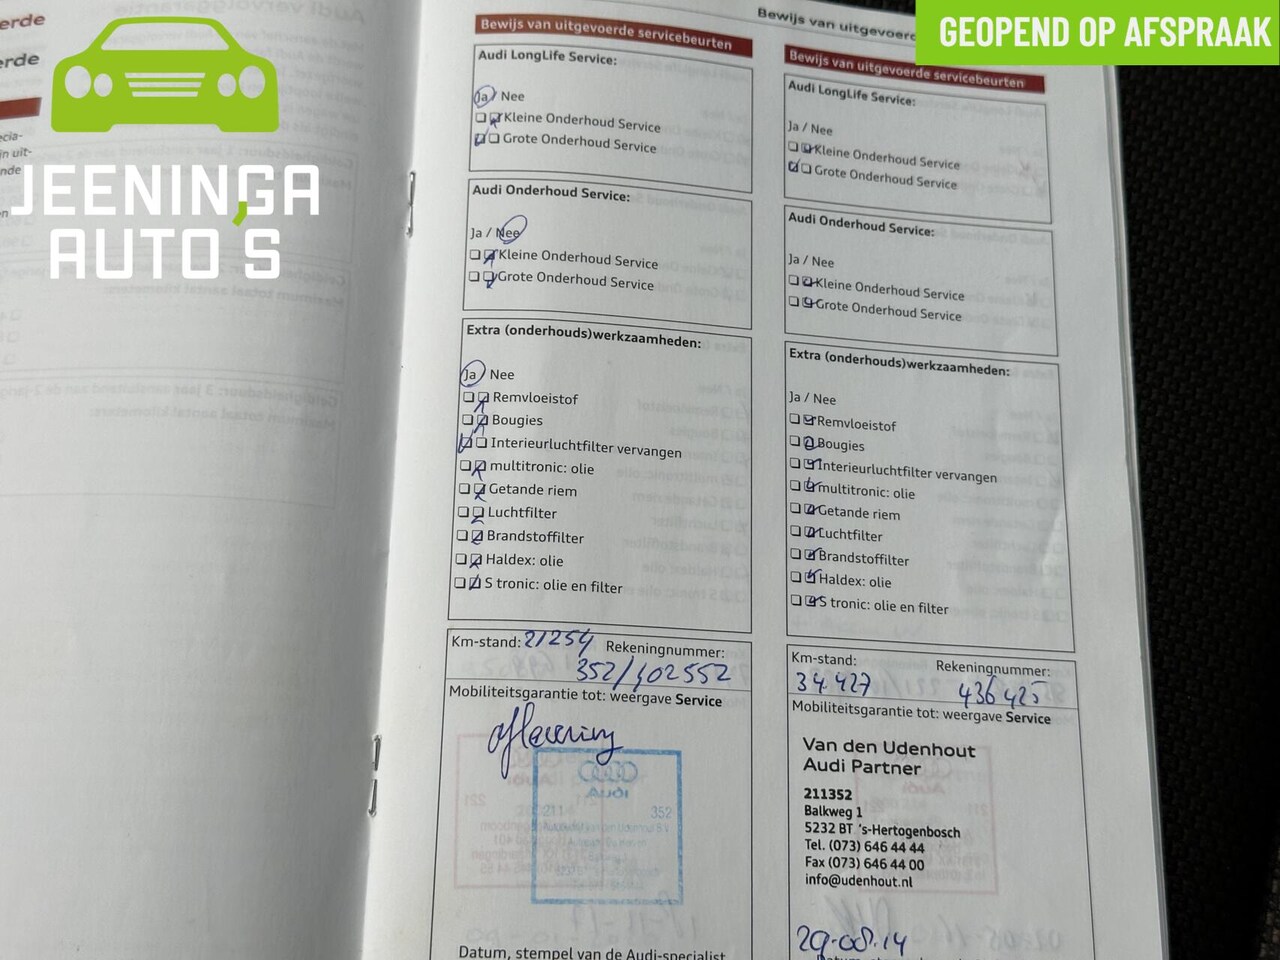 GEOPEND OP AFSPRAAK
JEENINGA
AUTO'S
erde
erde
Bewijs van uitgevoerde servicebeurten
Audi LongLife Service:
Ja / Nee
Kleine Onderhoud Service
Grote Onderhoud Service
Audi Onderhoud Service:
Ja / Nee
Kleine Onderhoud Service
Grote Onderhoud Service
Extra (onderhouds)werkzaamheden:
Ja / Nee
Remvloeistof
Bougies
Interieurluchtfilter vervangen
multitronic: olie
Getande riem
Luchtfilter
Brandstoffilter
Haldex: olie
S tronic: olie en filter
Km-stand: 21254 Rekeningnummer:
352/102552
Mobiliteitsgarantie tot: weergave Service
aflevering
Audi
211 352
Datum, stempel van de Audi-specialist
Bewijs van uitgevoerd
Bewijs van uitgevoerde servicebeurten
Audi LongLife Service:
Ja / Nee
Kleine Onderhoud Service
Grote Onderhoud Service
Audi Onderhoud Service:
Ja / Nee
Kleine Onderhoud Service
Grote Onderhoud Service
Extra (onderhouds)werkzaamheden:
Ja / Nee
Remvloeistof
Bougies
Interieurluchtfilter vervangen
multitronic: olie
Getande riem
Luchtfilter
Brandstoffilter
Haldex: olie
S tronic: olie en filter
Km-stand: Rekeningnummer:
34.427 436425
Mobiliteitsgarantie tot: weergave Service
Van den Udenhout
Audi Partner
211352
Balkweg 1
5232 BT 's-Hertogenbosch
Tel. (073) 646 44 44
Fax (073) 646 44 00
info@udenhout.nl
29-08-14